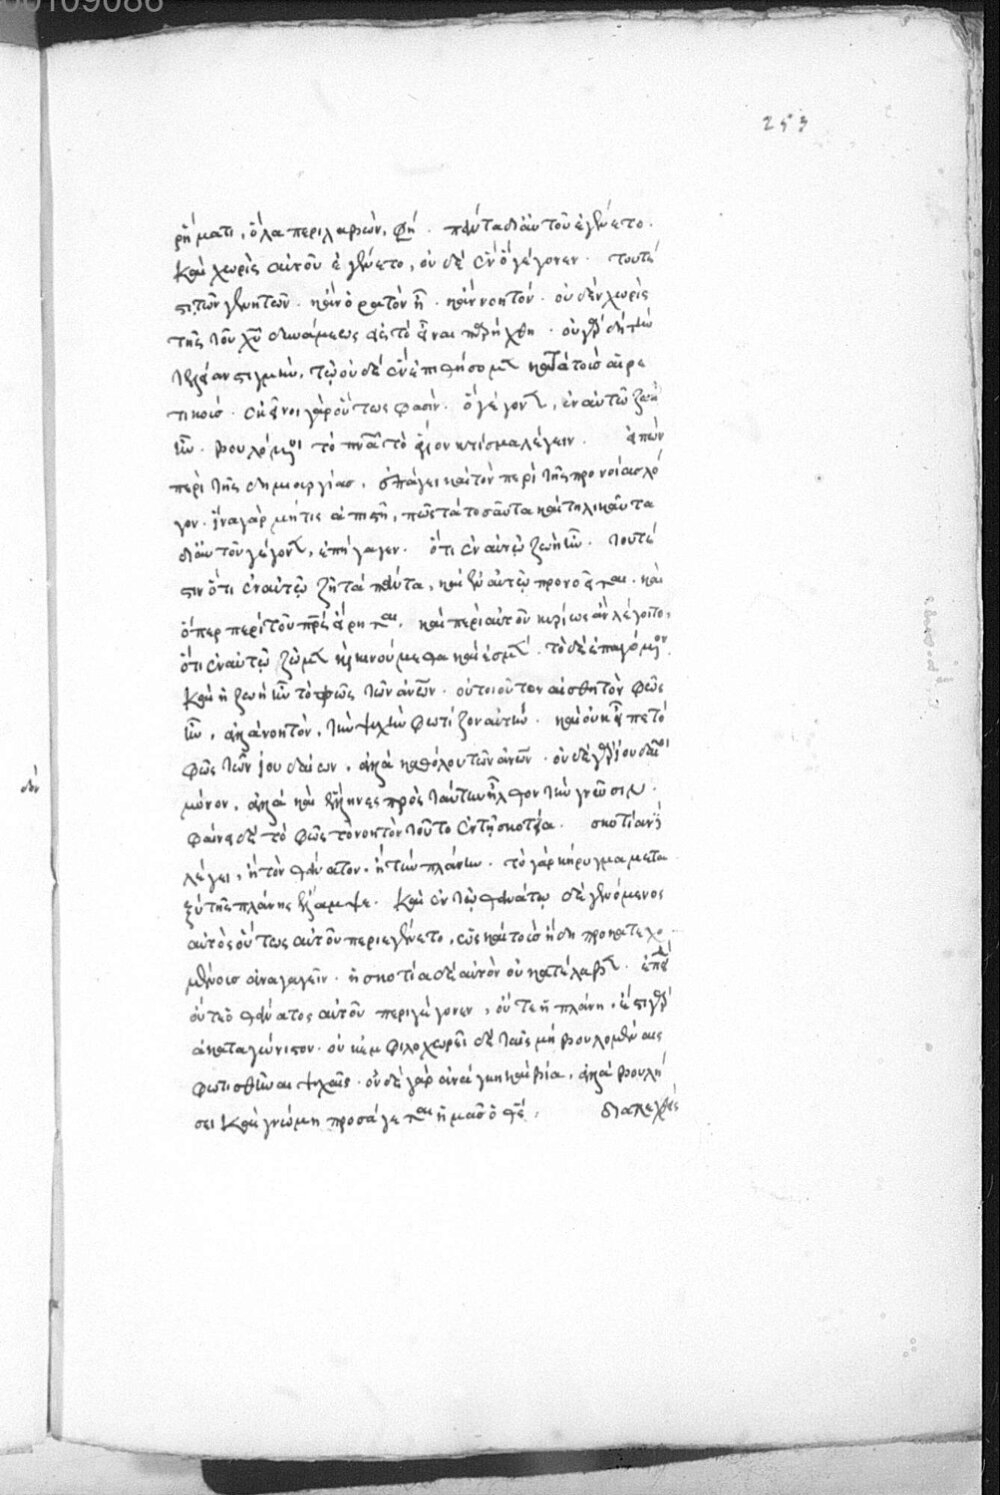 253
ρήματι, ὅλα περιλαβών, φη. πάντα δι αὐτοῦ ἐγένετο.
καὶ χωρὶς αὐτοῦ ἐγένετο, οὐδὲ ἓν ὃ γέγονεν. τουτέ
στι τῶν γενητῶν. κἂν ὁρατὸν ἦ. κἂν νοητόν. οὐδὲν χωρὶς
τῆς τοῦ χυ δυνάμεως εἰς τὸ εἶναι παρήχθη. οὐ γὰρ δὴ τὴν
τελείαν στιγμὴν, τῷ οὐδὲ ἓν ἐπιθήσομεν κατὰ τοὺς αἱρε
τικούς. ἐκεῖνοι γὰρ οὕτως φασίν. ὃ γέγονεν, ἐν αὐτῶ ζωὴ
ἦν. βουλόμενοι τὸ πνα τὸ ἅγιον κτίσμα λέγειν. εἰπὼν
περὶ τῆς δημιουργίας, ἐπάγει καὶ τὸν περὶ τῆς προνοίας λό
γον. ἵνα γὰρ μή τις ἀπιστῆ, πῶς τὰ τοσαῦτα καὶ τηλικαῦτα
δι αὐτοῦ γέγονεν, ἐπήγαγεν. ὅτι ἐν αὐτῷ ζωὴ ἦν. τουτέ
στιν ὅτι ἐν αὐτῷ ζῆ τὰ πάντα, καὶ ἐξ αὐτῷ προνοεῖται. καὶ
ὅπερ περὶ τοῦ πρς εἴρηται, καὶ περὶ αὐτοῦ κυρίως ἂν λέγοιτο,
ὅτι ἐν αὐτῶ ζῶμεν κινούμεθα καὶ ἐσμέν. τὸ δὲ ἐπαγόμενον.
καὶ ἡ ζωὴ ἦν τὸ φῶς τῶν ἀνων. οὔτοι οὖν τον αἰσθητὸν φῶς
ἦν, ἀλλὰ νοητὸν, τὴν ψυχὴν φωτίζον αὐτήν. καὶ οὐκ εἶπε τὸ
φῶς τῶν ἰουδαίων, ἀλλὰ καθόλου τῶν ἀνων. οὐδὲ γὰρ ἰουδαῖοι
μόνον, ἀλλὰ καὶ ἕλληνες πρὸς ταύτην ἦλθον τὴν γνῶσιν.
φαίνει δὲ τὸ φῶς τὸ νοητὸν τοῦτο ἐν τῇ σκοτία. σκοτίαν
λέγει, ἢ τὸν θάνατον. ἢ τὴν πλάνην. τὸ γὰρ κήρυγμα μετα
ξὺ τῆς πλάνης ἐξέλαμψε. καὶ ἐν τῷ θανάτῳ δὲ γενόμενος
αὐτὸς οὕτως αὐτοῦ περιεγένετο, ὡς καὶ τοὺς ἤδη προκατεχο
μένους ἀναγαγεῖν. ἡ σκοτία δὲ αὐτὸν οὐ κατέλαβεν. ἐπεὶ
οὔτε ὁ θάνατος αὐτοῦ περιγέγονεν, οὔτε ἡ πλάνη. ἔστι γὰρ
ἀκαταγώνιστον. οὐκ ἐμφιλοχωρεῖ δὲ ταῖς μὴ βουλομέναις
φωτισθῆναι ψυχαῖς. οὐδὲ γὰρ ἀνάγκη καὶ βία, ἀλλὰ βουλή
σει καὶ γνώμη προσάγεται ἡμᾶς ὁ θς. διαλεχθεὶς